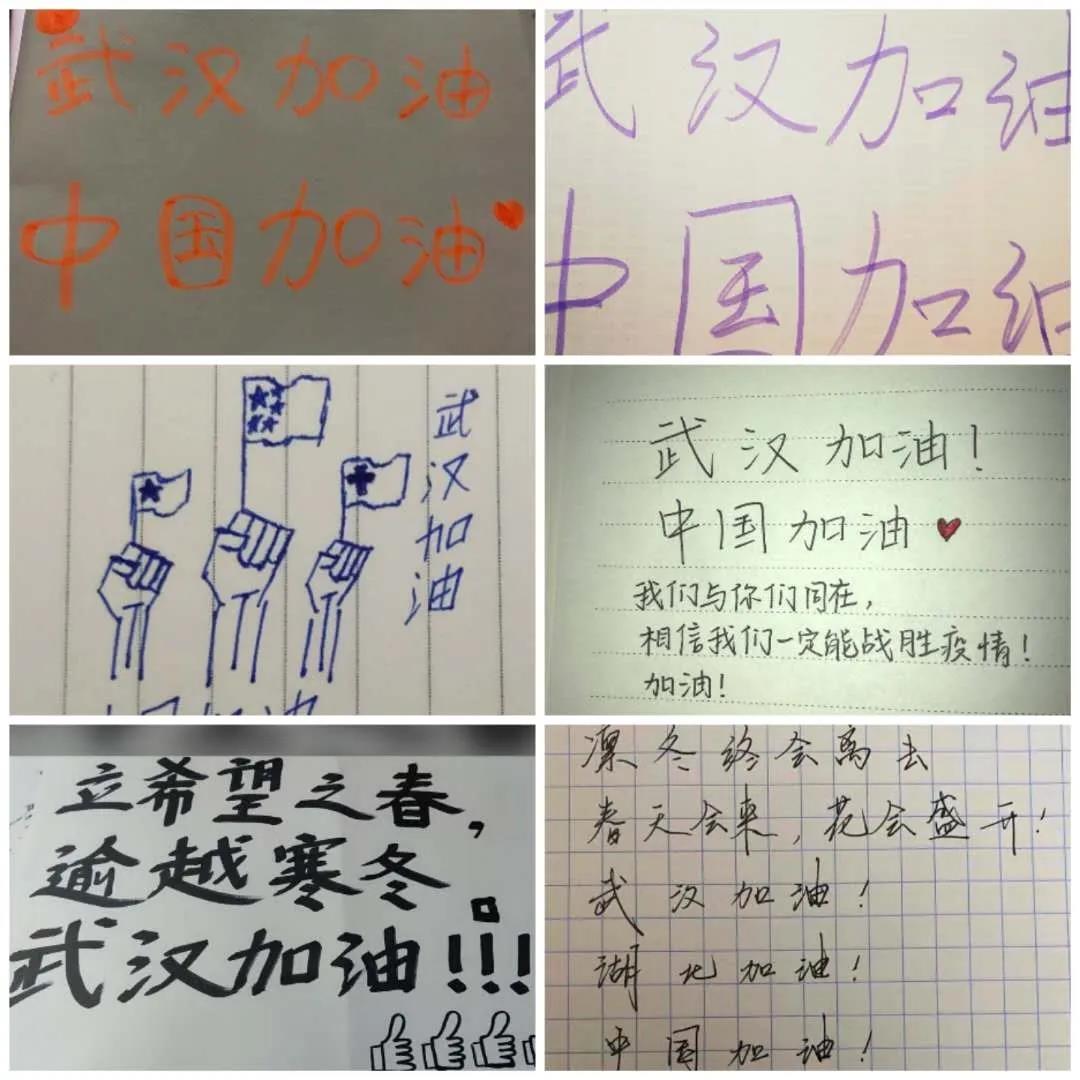 武汉加油
中国加油
武汉加油
中国加油
武汉加油
武汉加油！
中国加油
我们与你们同在，
相信我们一定能战胜疫情！
加油！
立希望之春，
逾越寒冬。
武汉加油!!!
凛冬终会离去
春天会来，花会盛开！
武汉加油！
湖北加油！
中国加油！